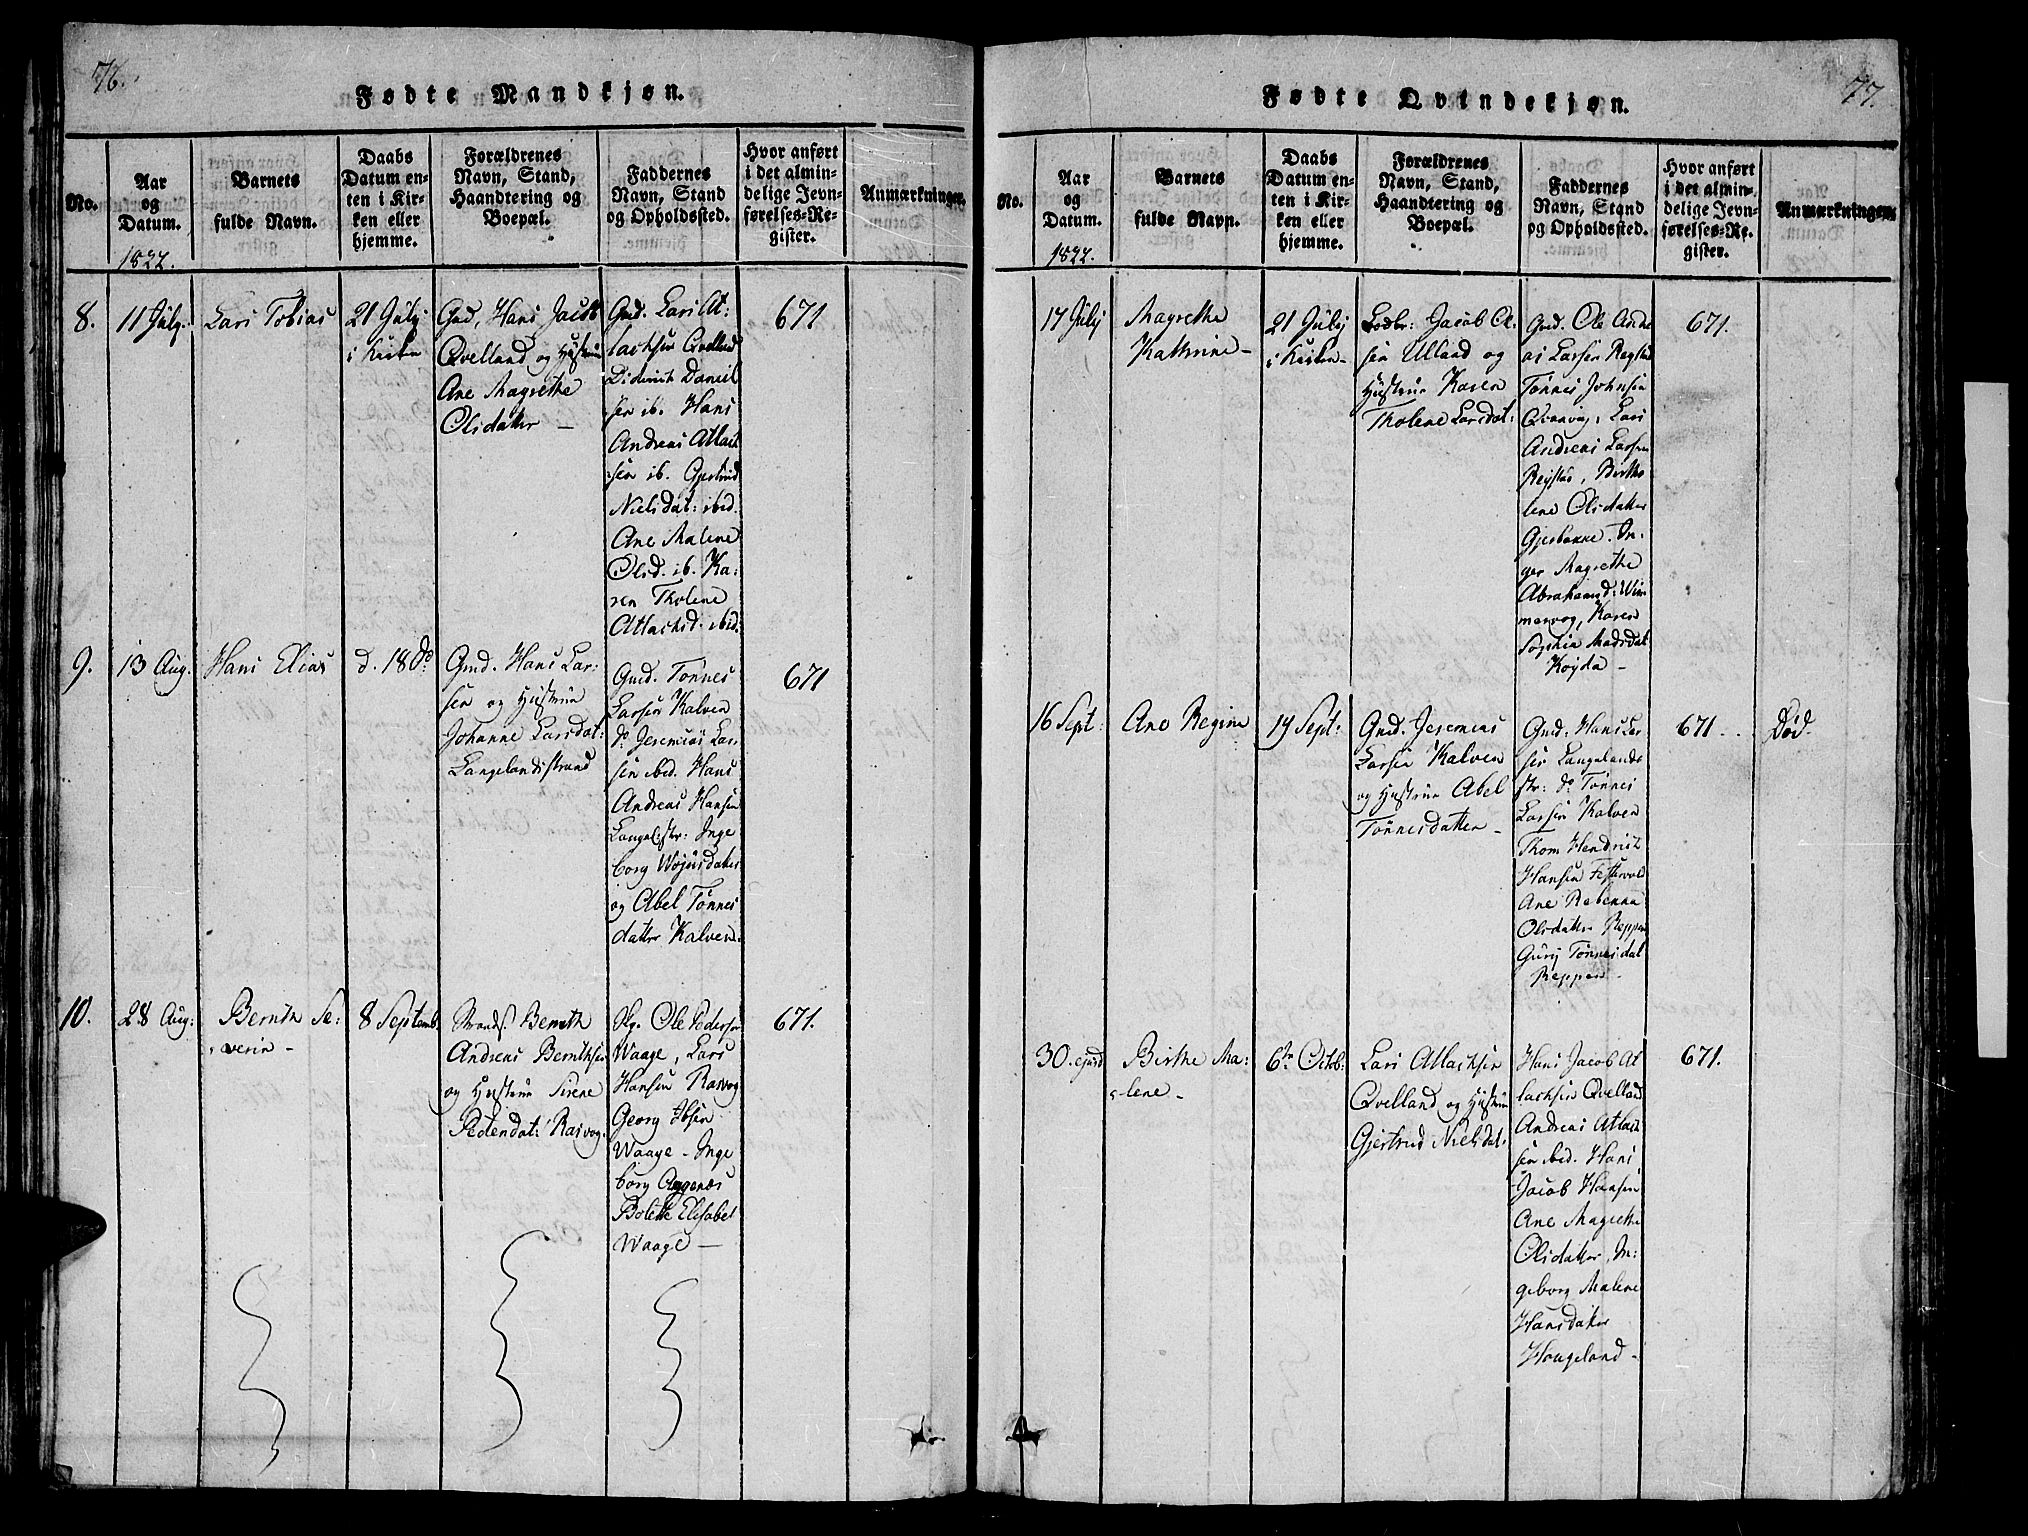 76.
Fødte Mandkjøn.
No.
Aar
og
Datum.
1822.
Barnets
fulde Navn.
Daabs
Datum en-
ten i Kir-
ken eller
hjemme.
Forældrenes
Navn, Stand,
Haandtering og
Boepæl.
Faddernes
Navn, Stand
og Opholdssted.
Hvor anført
i det almin-
delige Jevn-
førelses-Re-
gister.
Anmærkninger.
8.
11 July.
Lars Tobias
21 July
i Kirken
Gmd, Hans Jacob
Qvelland og Hustrue
Ane Magrethe
Olsdatter —
Gmd. Lars At:
lachsen Qvelland
Diderich Daniel
sen ib. Hans
Andreas Atlach
sen ib. Gjertrud
Nielsdat: ibid.
Ane Malene
Olsd. ib. Ka:
ren Tholene
Atlachsd: ibid:
671
9.
13 Aug.
Hans Elias
d. 18 do
Gmd. Hans Lar:
sen og Hustrue
Johanne Larsdat:
Langelandsstrand
Gmd. Tønnes
Larsen Kalven
do Jeremias Lar-
sen ibid. Hans
Andreas Hansen
Langel:str: Inge
borg
og Abel Tønnes
datter Kalven.
671
10.
28 Aug:
Bernth Se:
verin —
8 Septemb.
Strands. Bernth
Andreas Bernthsen
og Hustrue Sirene
Pedersdat: Rasvog.
Ole Pedersen
Waage, Lars
Hansen Rasvog
Georg Ibsen
Waage — Inge
borg
Bolette Elisabet
Waage —
671.
77.
Fødte Qvindekjøn.
No.
Aar
og
Datum.
1822.
Barnets
fulde Navn.
Daabs
Datum en-
ten i Kir-
ken eller
hjemme.
Forældrenes
Navn, Stand,
Haandtering og
Boepæl.
Faddernes
Navn, Stand
og Opholdssted.
Hvor anført
i det almin-
delige Jevn-
førelses-Re-
gister.
Anmærkninger.
17 July
Magrethe
Kathrine —
21 July
i Kirken —
Jacob Ol:
sen Ulland og
Hustrue Karen
Tholene Larsdat:
Gmd. Ole Andre
as Larsen Regstad
Tønnes Johnsen
Lars
Andreas Larsen
Regstad, Birthe
lene Olsdatter
Gjerbakke. In:
ger Magrethe
Abrahamsd: Wim
mervog, Karen
Sophia Madsdat
Kogda —
671.
16 Sept:
Ane Regine
19 Sept:
Gmd. Jeremias
Larsen Kalven
og Hustrue Abel
Tønnesdatter —
Gmd. Hans Lar
sen Langelands
str: do Tønnes
Larsen Kalven
Thom Hendrich
Hansen
Ane Rebekka
Olsdatter Reppen
Gury Tønnesdat
Reppen —
671.
Død.
30. ejusd
Birthe Ma:
lene —
6te Octob:
Lars Atlachsen
Qvelland og Hustrue
Gjertrud Nielsdat.
Hans Jacob At
lachsen Qvelland
Andreas Atlach
sen ibid. Hans
Jacob Hansen
Ane Magrethe
Olsdatter, In:
geborg Malene
Hansdatter
Haugeland —
671.